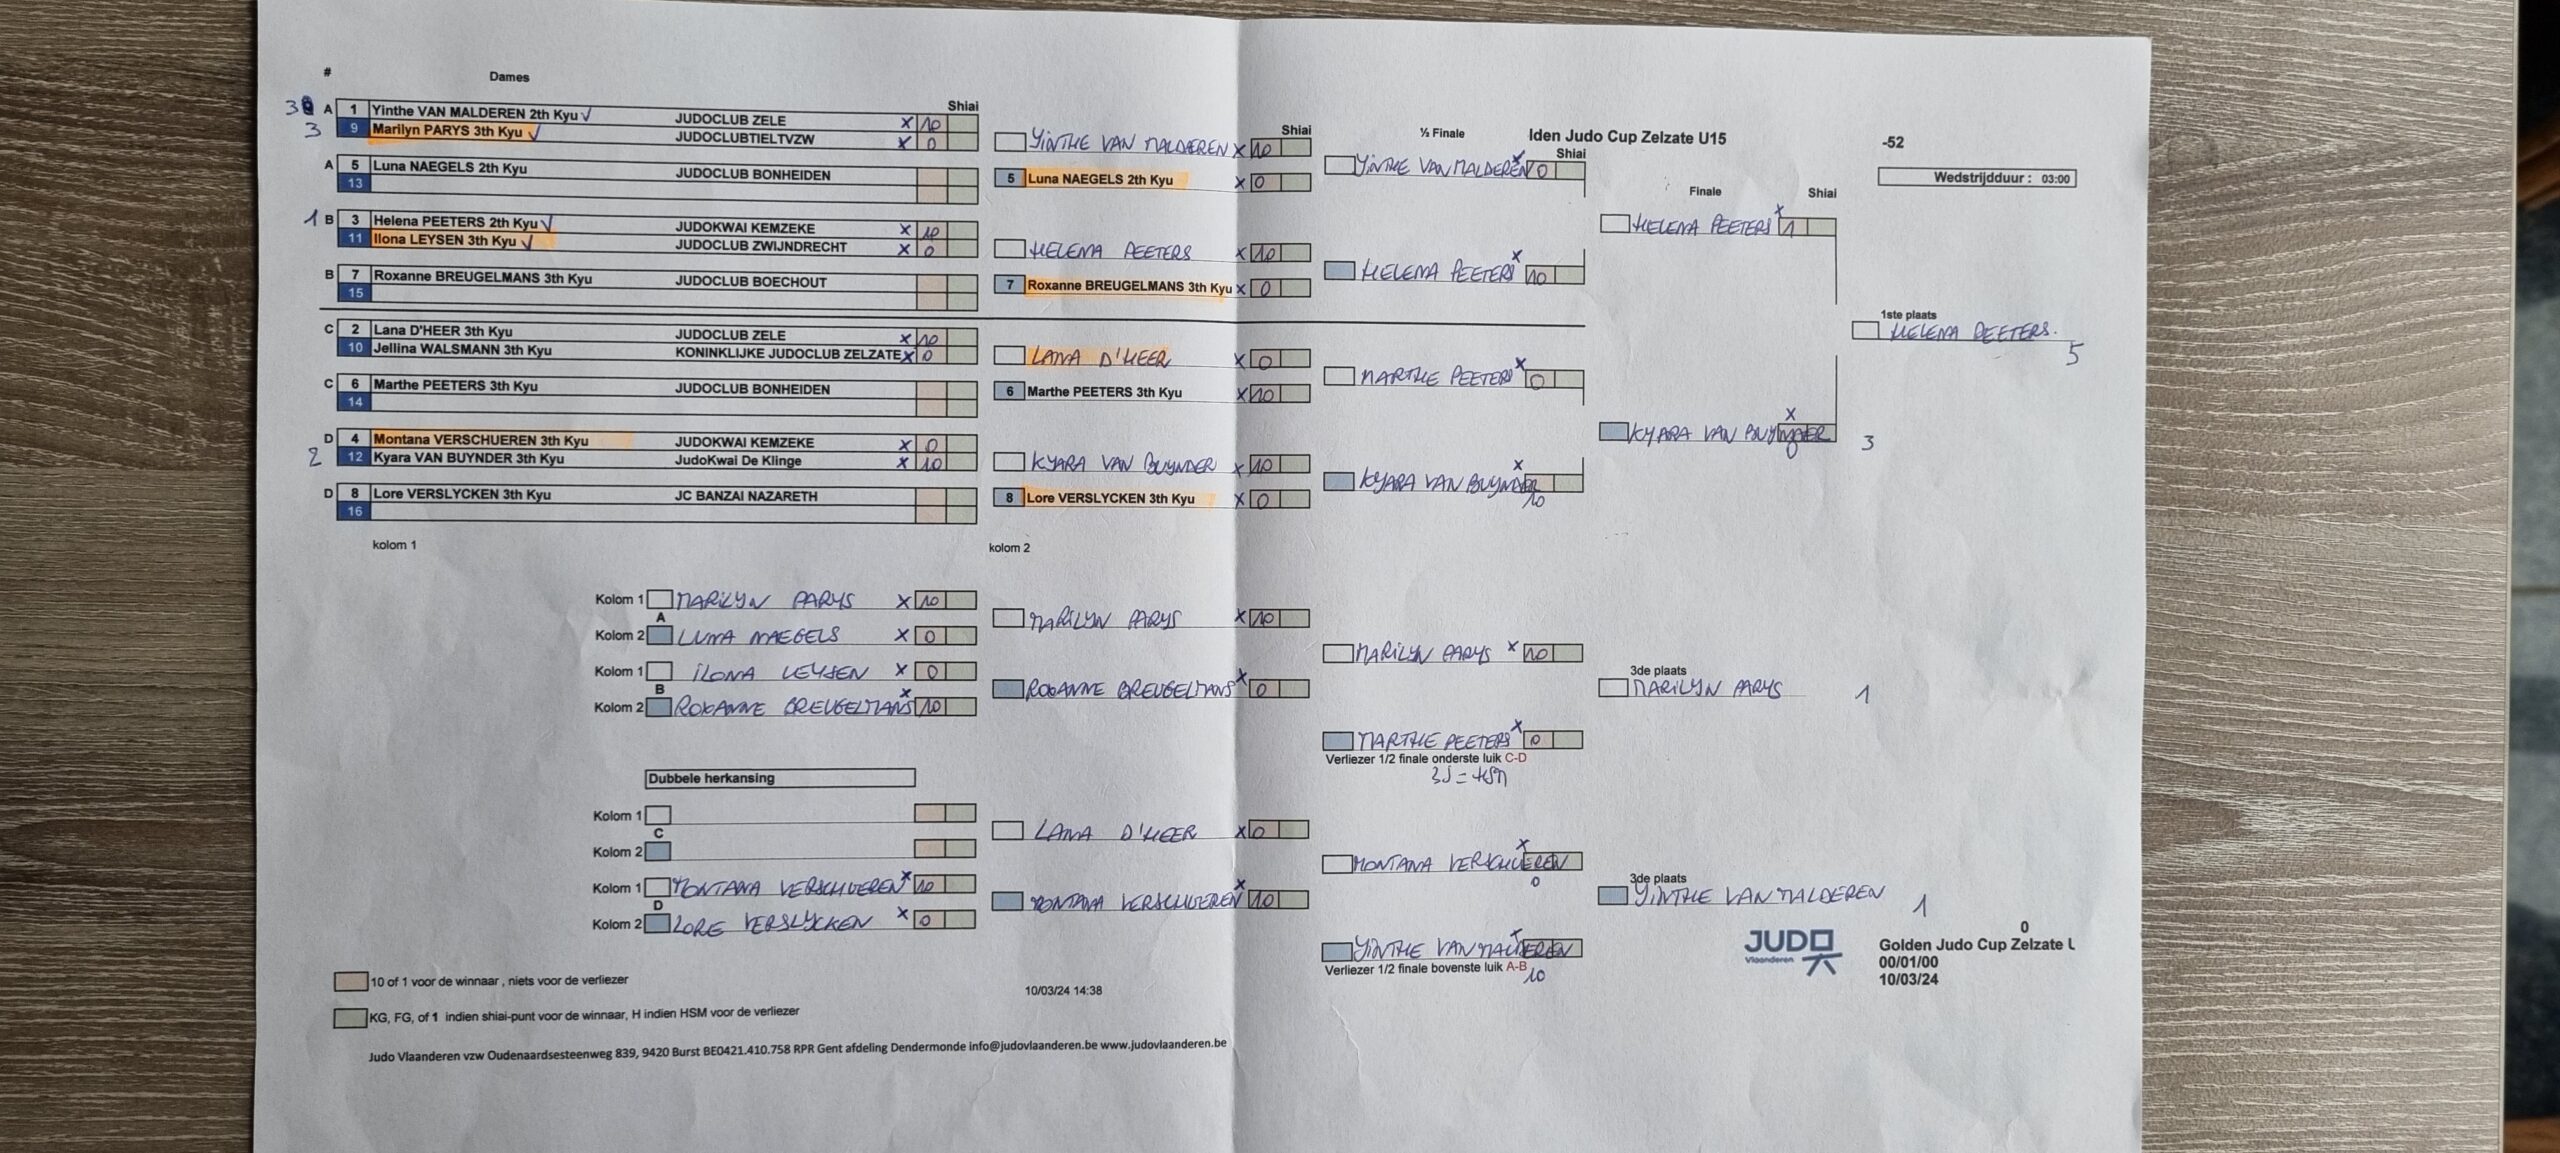 # Dames Shiai
3 A 1 Yinthe VAN MALDEREN 2th Kyu ✓ JUDOCLUB ZELE X 10
3 9 Marilyn PARYS 3th Kyu ✓ JUDOCLUBTIELTVZW X 0
A 5 Luna NAEGELS 2th Kyu JUDOCLUB BONHEIDEN
13
1 B 3 Helena PEETERS 2th Kyu ✓ JUDOKWAI KEMZEKE X 10
11 Ilona LEYSEN 3th Kyu ✓ JUDOCLUB ZWIJNDRECHT X 0
B 7 Roxanne BREUGELMANS 3th Kyu JUDOCLUB BOECHOUT
15
C 2 Lana D'HEER 3th Kyu JUDOCLUB ZELE X 10
10 Jellina WALSMANN 3th Kyu KONINKLIJKE JUDOCLUB ZELZATE X 0
C 6 Marthe PEETERS 3th Kyu JUDOCLUB BONHEIDEN
14
D 4 Montana VERSCHUEREN 3th Kyu JUDOKWAI KEMZEKE X 0
2 12 Kyara VAN BUYNDER 3th Kyu JudoKwai De Klinge X 10
D 8 Lore VERSLYCKEN 3th Kyu JC BANZAI NAZARETH
16
kolom 1
Shiai
YINTHE VAN MALDEREN X 10
5 Luna NAEGELS 2th Kyu X 0
HELENA PEETERS X 10
7 Roxanne BREUGELMANS 3th Kyu X 0
LANA D'HEER X 0
6 Marthe PEETERS 3th Kyu X 10
KYARA VAN BUYNDER X 10
8 Lore VERSLYCKEN 3th Kyu X 0
kolom 2
½ Finale
Shiai
YINTHE VAN MALDEREN X 0
HELENA PEETERS X 10
MARTHE PEETERS X 0
KYARA VAN BUYNDER X 10
lden Judo Cup Zelzate U15
-52
Wedstrijdduur : 03:00
Finale Shiai
HELENA PEETERS X 1
KYARA VAN BUYNDER X 0 3
1ste plaats
HELENA PEETERS.
5
Kolom 1 MARILYN PARYS X 10
A
Kolom 2 LUNA NAEGELS X 0
Kolom 1 ILONA LEYSEN X 0
B
Kolom 2 ROXANNE BREUGELMANS X 10
MARILYN PARYS X 10
ROXANNE BREUGELMANS X 0
MARILYN PARYS X 10
MARTHE PEETERS X 0
Verliezer 1/2 finale onderste luik C-D
3de plaats
MARILYN PARYS 1
Dubbele herkansing
Kolom 1
C
Kolom 2
Kolom 1 MONTANA VERSCHUEREN X 10
D
Kolom 2 LORE VERSLYCKEN X 0
LANA D'HEER X 0
MONTANA VERSCHUEREN X 10
MONTANA VERSCHUEREN X
0
YINTHE VAN MALDEREN X
Verliezer 1/2 finale bovenste luik A-B 10
3de plaats
YINTHE VAN MALDEREN 1
10 of 1 voor de winnaar , niets voor de verliezer
10/03/24 14:38
KG, FG, of 1 indien shiai-punt voor de winnaar, H indien HSM voor de verliezer
Judo Vlaanderen vzw Oudenaardsesteenweg 839, 9420 Burst BE0421.410.758 RPR Gent afdeling Dendermonde info@judovlaanderen.be www.judovlaanderen.be
JUDO
Vlaanderen
0
Golden Judo Cup Zelzate U
00/01/00
10/03/24